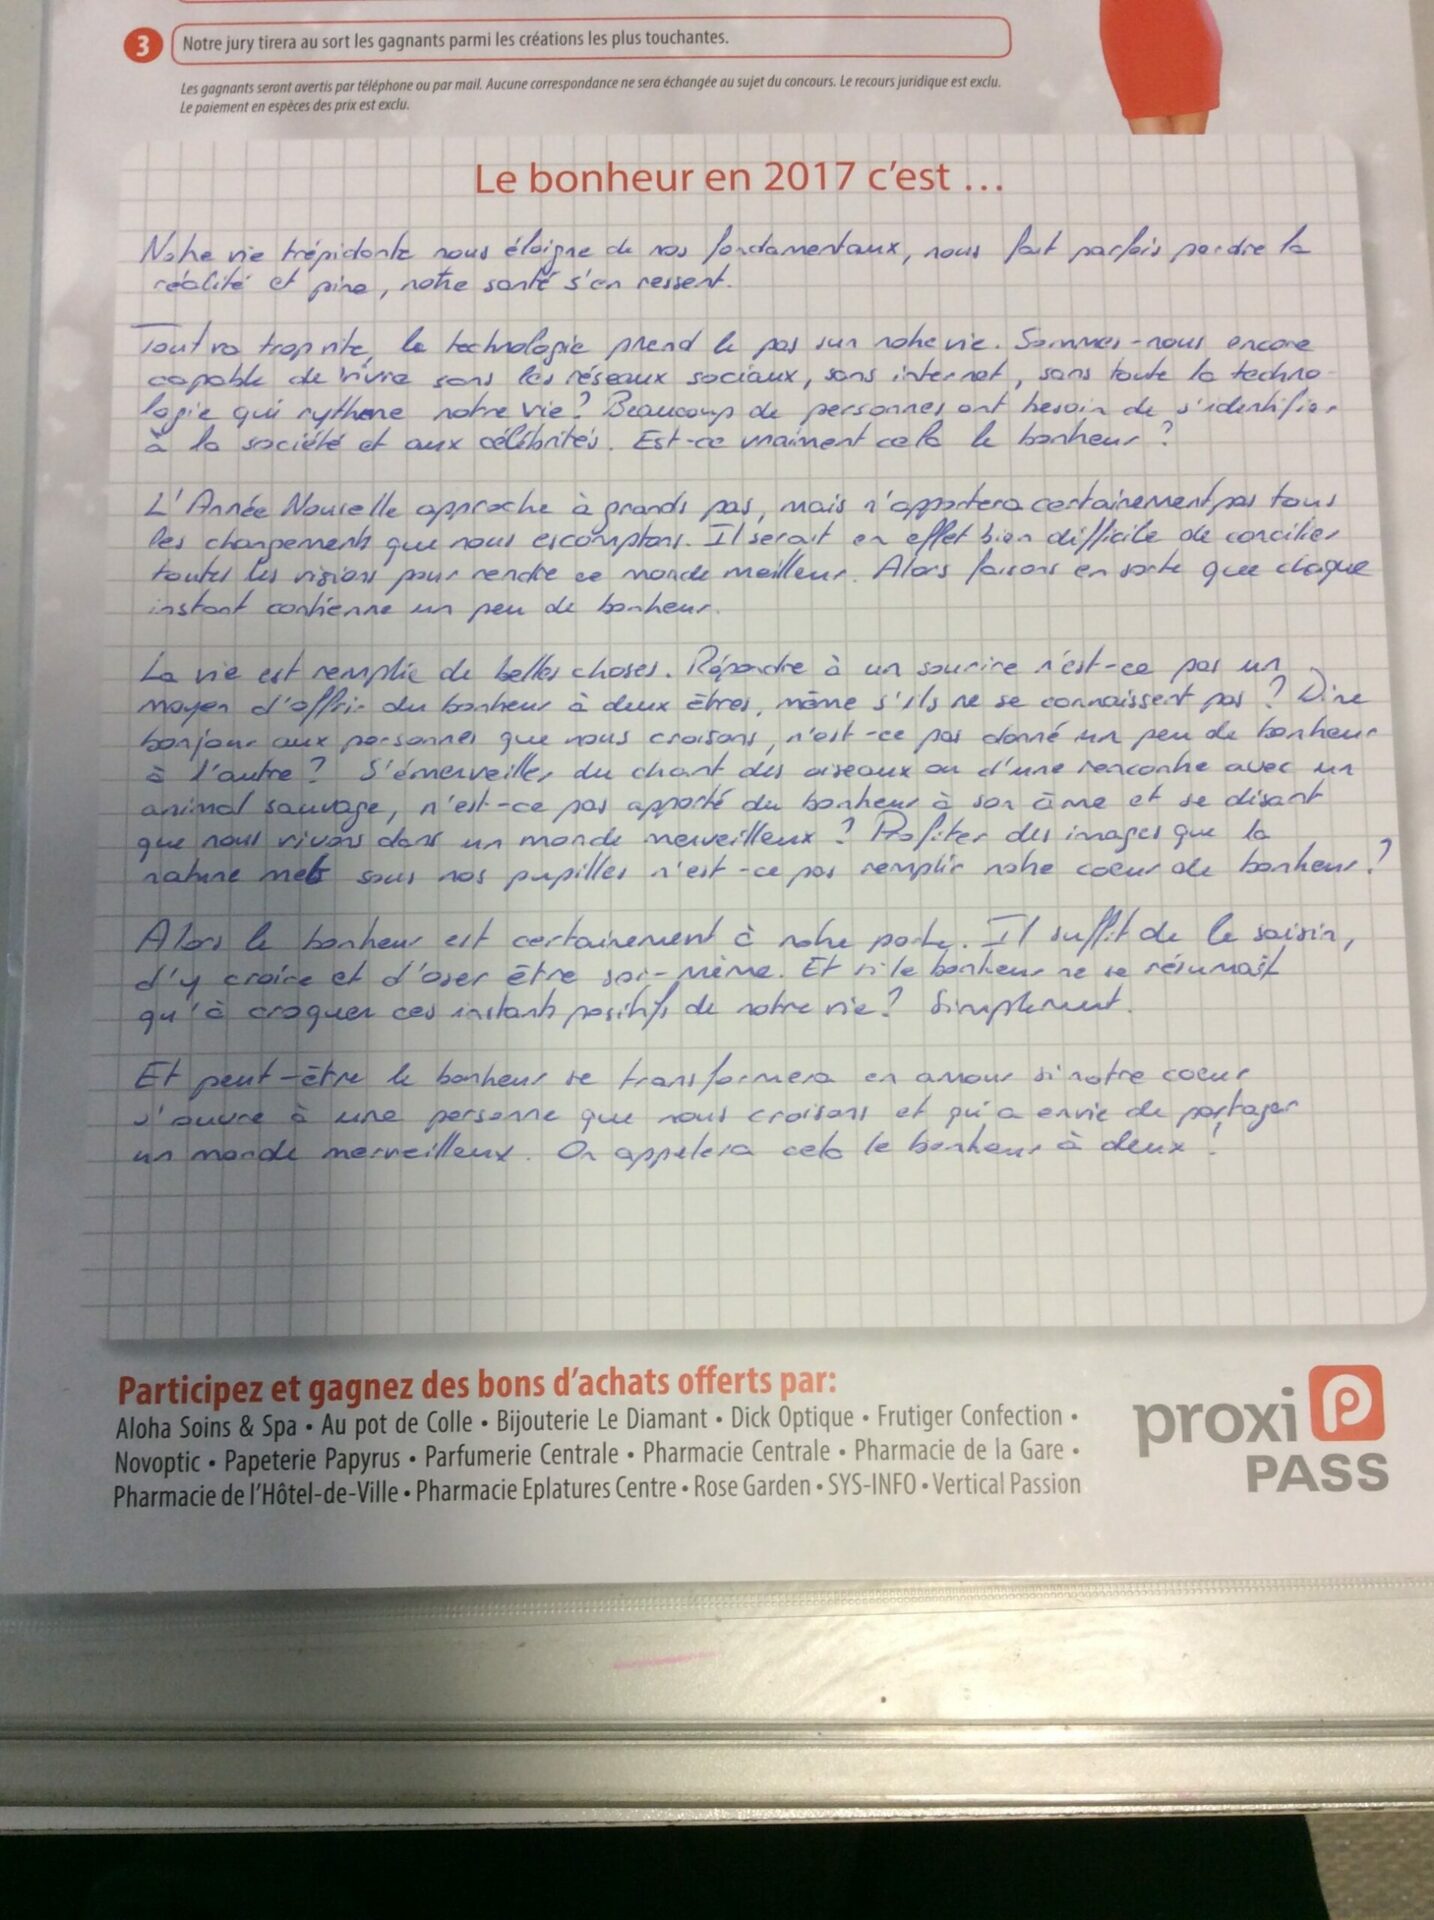 3 Notre jury tirera au sort les gagnants parmi les créations les plus touchantes.
Les gagnants seront avertis par téléphone ou par mail. Aucune correspondance ne sera échangée au sujet du concours. Le recours juridique est exclu.
Le paiement en espèces des prix est exclu.
Le bonheur en 2017 c'est ...
Notre vie trépidante nous éloigne de nos fondamentaux, nous fait parfois perdre la
réalité et pire, notre santé s'en ressent.
Tout va trop vite, la technologie prend le pas sur notre vie. Sommes-nous encore
capable de vivre sans les réseaux sociaux, sans internet, sans toute la techno-
logie qui rythme notre vie? Beaucoup de personnes ont besoin de s'identifier
à la société et aux célébrités. Est-ce vraiment cela le bonheur?
L'Année Nouvelle approche à grands pas, mais n'apportera certainement pas tous
les changements que nous escomptons. Il serait en effet bien difficile de concilier
toutes les visions pour rendre ce monde meilleur. Alors faisons en sorte que chaque
instant contienne un peu de bonheur.
La vie est remplie de belles choses. Répondre à un sourire n'est-ce pas un
moyen d'offrir du bonheur à deux êtres, même s'ils ne se connaissent pas? Dire
bonjour aux personnes que nous croisons, n'est-ce pas donné un peu de bonheur
à l'autre? S'émerveiller du chant des oiseaux ou d'une rencontre avec un
animal sauvage, n'est-ce pas apporté du bonheur à son âme et se disant
que nous vivons dans un monde merveilleux? Profiter des images que la
nature met sous nos pupilles n'est-ce pas remplir notre coeur de bonheur?
Alors le bonheur est certainement à notre porte. Il suffit de le saisir,
d'y croire et d'oser être soi-même. Et si le bonheur ne se résumait
qu'à croquer ces instants positifs de notre vie? Simplement.
Et peut-être le bonheur se transformera en amour si notre coeur
s'ouvre à une personne que nous croisons et qui a envie de partager
un monde merveilleux. On appelera cela le bonheur à deux!
Participez et gagnez des bons d'achats offerts par:
Aloha Soins & Spa • Au pot de Colle • Bijouterie Le Diamant • Dick Optique • Frutiger Confection •
Novoptic • Papeterie Papyrus • Parfumerie Centrale • Pharmacie Centrale • Pharmacie de la Gare •
Pharmacie de l'Hôtel-de-Ville • Pharmacie Eplatures Centre • Rose Garden • SYS-INFO • Vertical Passion
proxi P
PASS